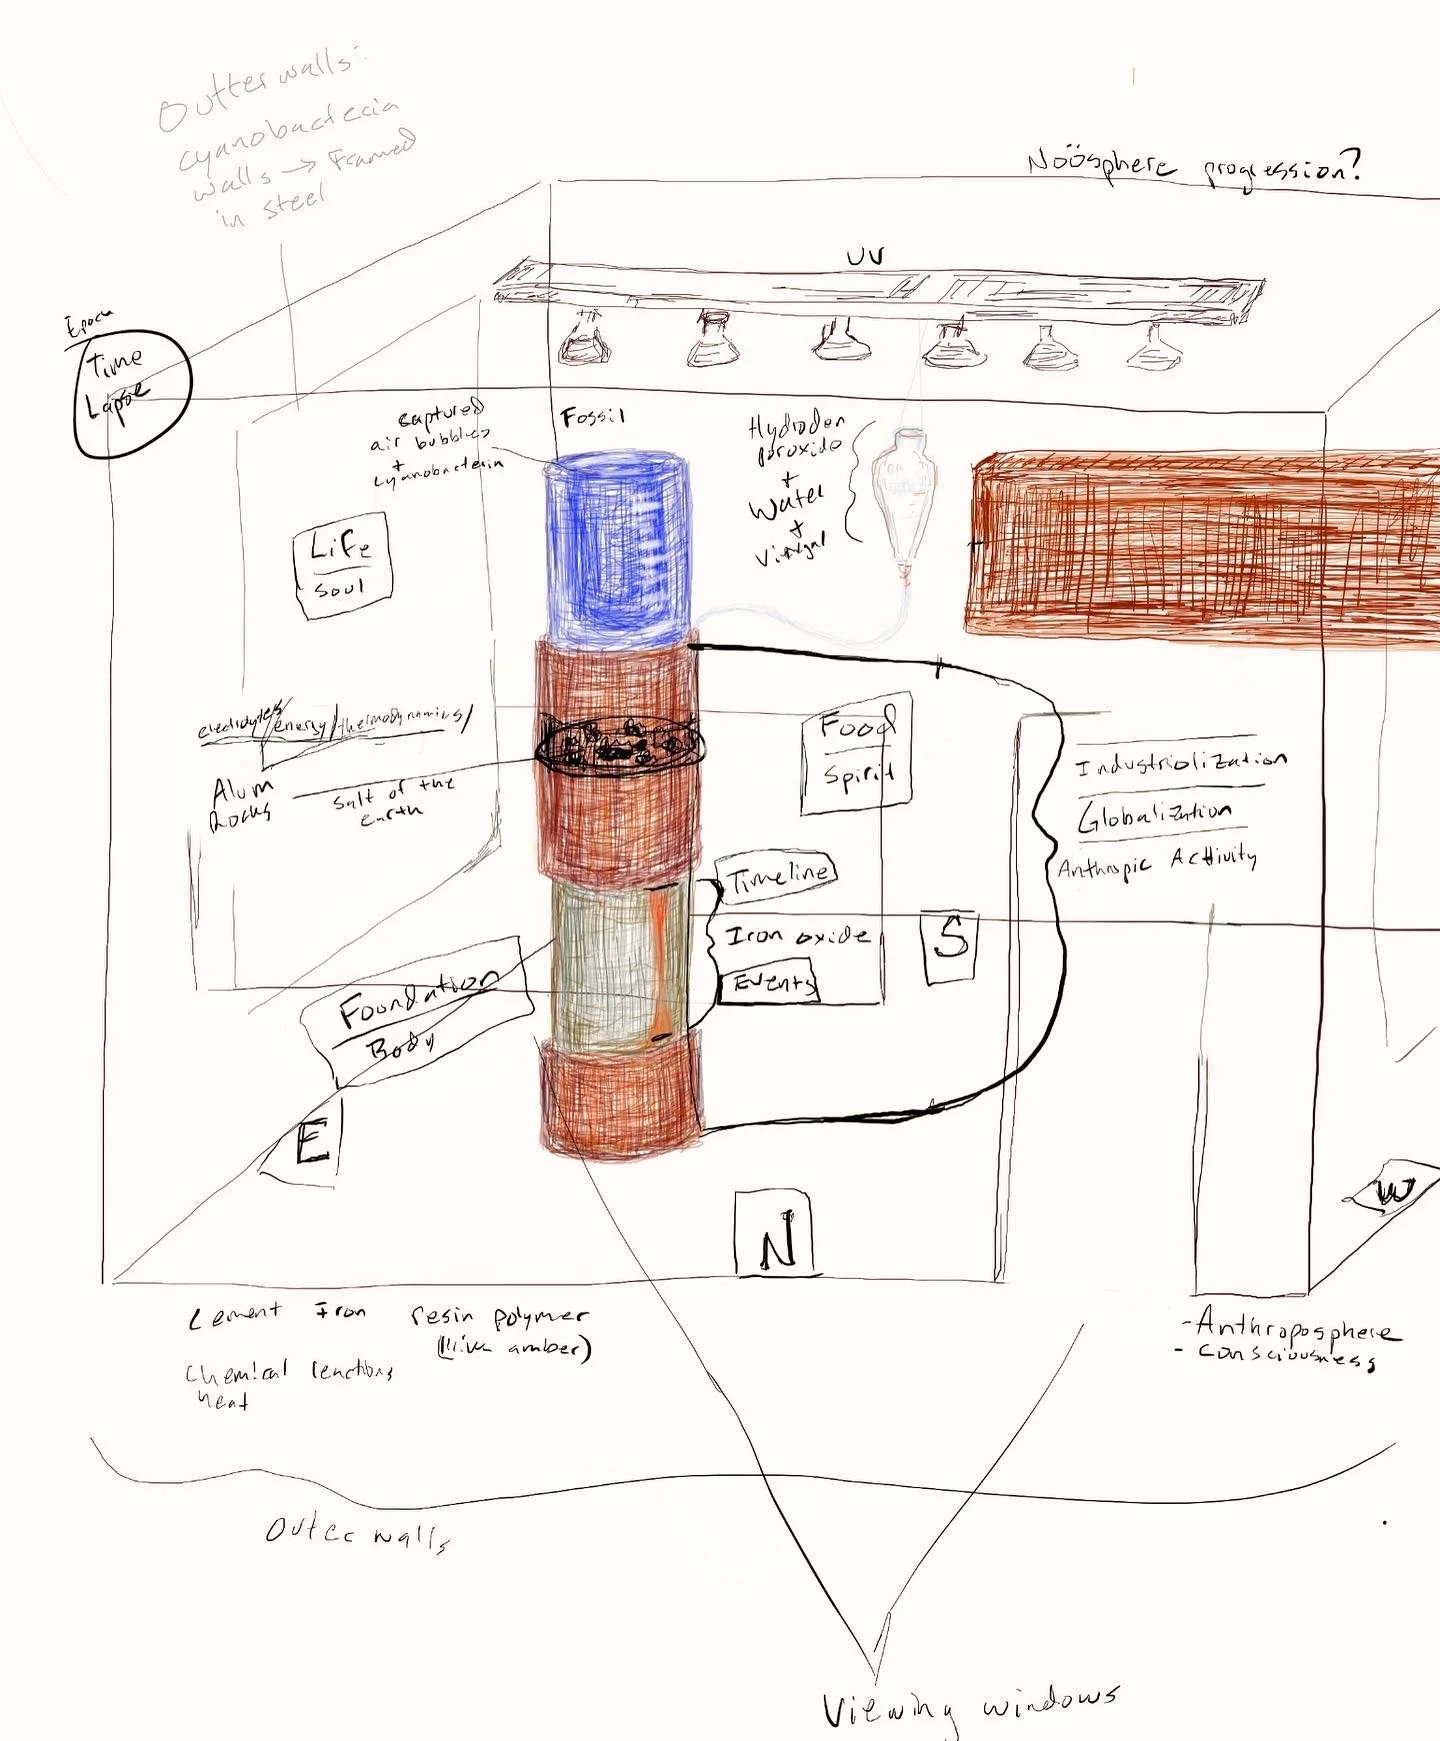 Outter walls:
cyanobacteria
walls → Framed
in steel
Noösphere progression?
UV
Epoch
Time
Lapse
captured
air bubbles
+
cyanobacteria
Fossil
Hydroden
peroxide
+
Water
+
Vinegar
Life
Soul
electrolytes/energy/thermodynamics/
Alum
Rocks
Salt of the
earth
Food
Spirit
Industriolization
Globalization
Anthropic Acttivity
Timeline
Iron oxide
Events
S
Foundation
Body
E
N
W
Cement Iron resin polymer
(like amber)
Chemical reactions
heat
-Anthroposphere
- consciousness
Outer walls
Viewing windows